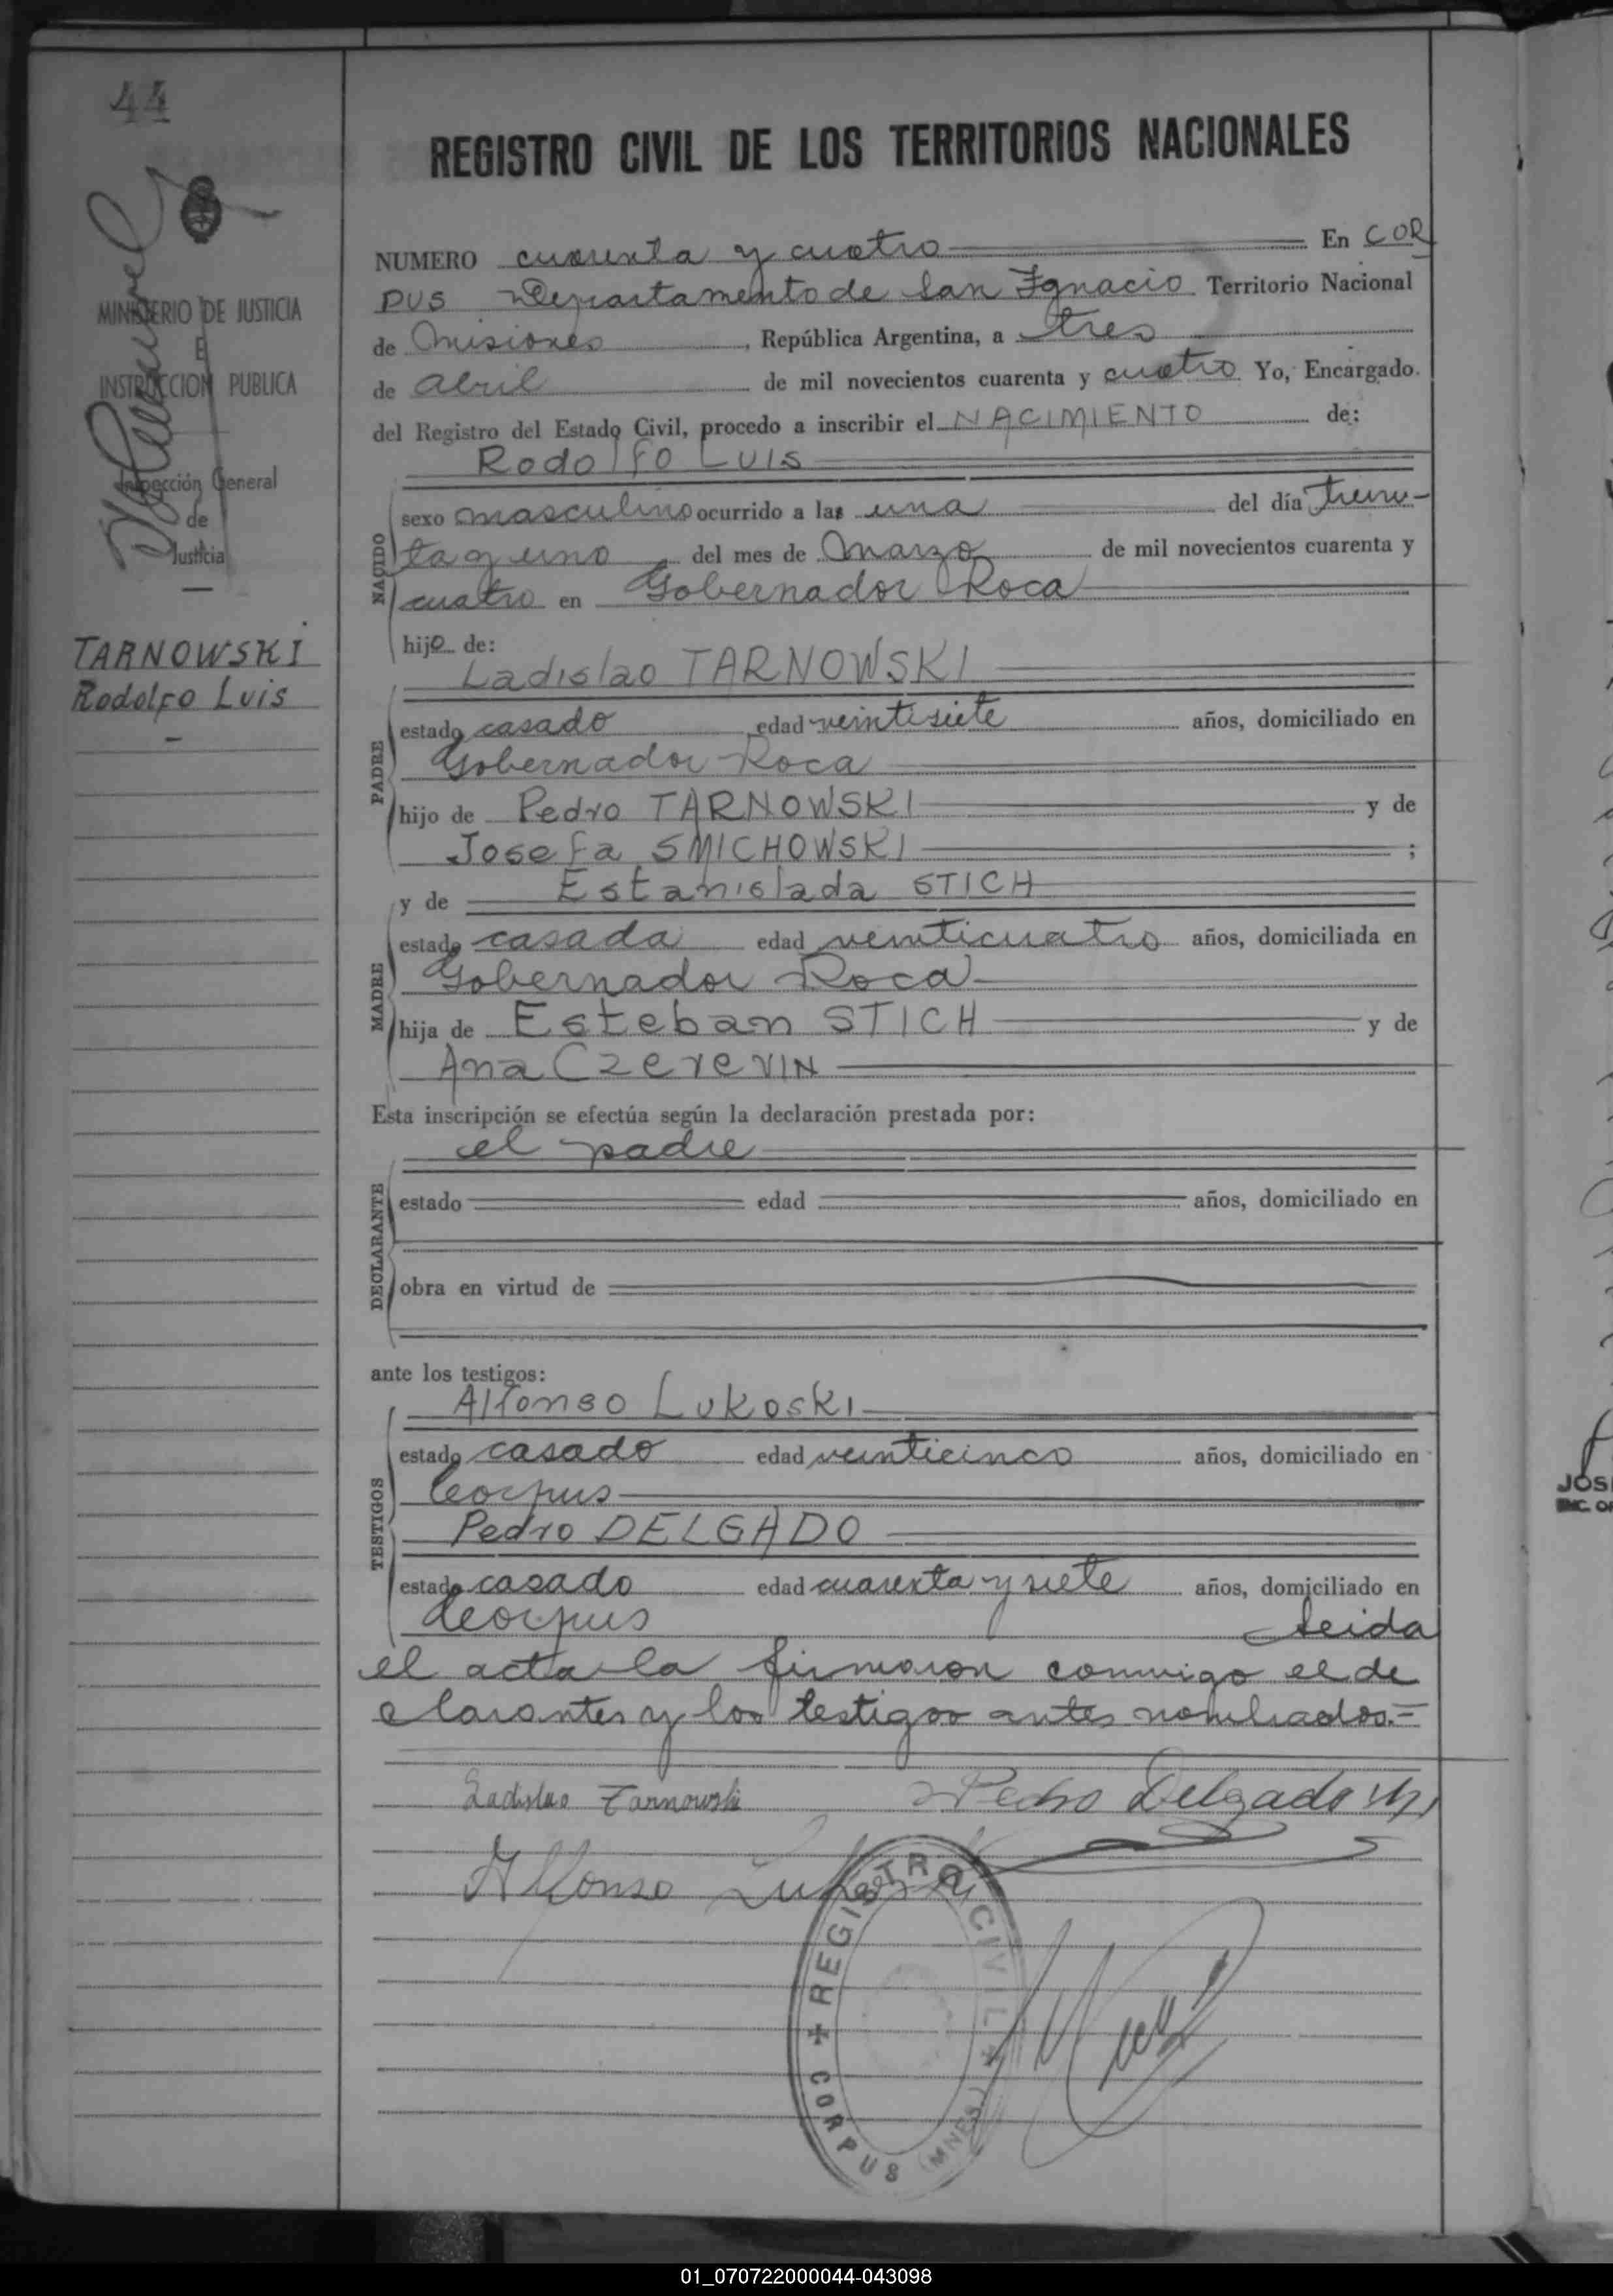 44
MINISTERIO DE JUSTICIA
E
INSTRUCCION PUBLICA
Inspección General
de
Justicia
TARNOWSKI
Rodolfo Luis
REGISTRO CIVIL DE LOS TERRITORIOS NACIONALES
NUMERO cuarenta y cuatro En COR
PUS Departamento de San Ignacio Territorio Nacional
de Misiones, República Argentina, a tres
de abril de mil novecientos cuarenta y cuatro Yo, Encargado
del Registro del Estado Civil, procedo a inscribir el NACIMIENTO de:
Rodolfo LUIS
NACIDO
sexo masculino ocurrido a las una del día trein-
ta y uno del mes de Marzo de mil novecientos cuarenta y
cuatro en Gobernador Roca
hijo de:
Ladislao TARNOWSKI
PADRE
estado casado edad veintisiete años, domiciliado en
Gobernador Roca
hijo de Pedro TARNOWSKI y de
Josefa SMICHOWSKI ;
y de Estanislada STICH
MADRE
estado casada edad veinticuatro años, domiciliada en
Gobernador Roca
hija de Esteban STICH y de
Ana CzereVIN
Esta inscripción se efectúa según la declaración prestada por:
el padre
DECLARANTE
estado edad años, domiciliado en
obra en virtud de
ante los testigos:
Alfonso LukoskI
TESTIGOS
estado casado edad veinticinco años, domiciliado en
Corpus
Pedro DELGADO
estado casado edad cuarenta y siete años, domiciliado en
Corpus Leida
el acta la firmaron conmigo el de
clarantes y los testigos antes nombrados.=
Ladislao Tarnowski Pedro Delgado
Alfonso Lukoski
REGISTRO CIVIL
CORPUS (MNES)
JOS
ENC. OF
01_070722000044-043098